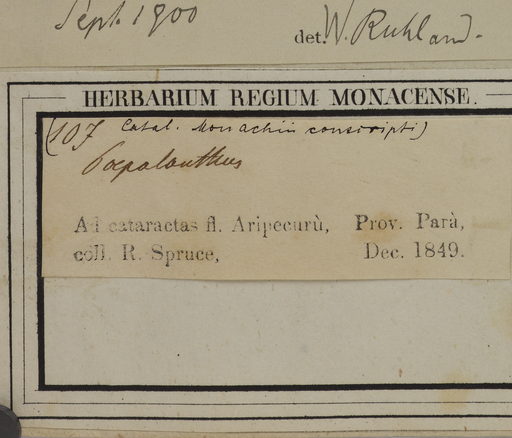 Sept. 1900
det. W. Ruhland.
HERBARIUM REGIUM MONACENSE.
(107 Catal. Monachii conscripti)
Paepalanthus
Ad cataractas fl. Aripecurù, Prov. Parà,
coll. R. Spruce, Dec. 1849.